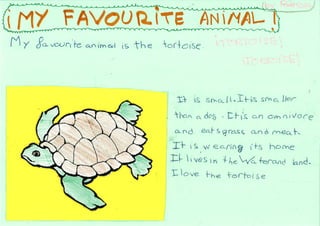 ¡MY FAVOURITE ANIMAL!
My favourite animal is the tortoise
[TORTOISE]
It is small. It is smaller
than a dog. It is an omnivore
and eats grass and meat.
It is wearing its home
It lives in the Water and land.
I love the tortoise